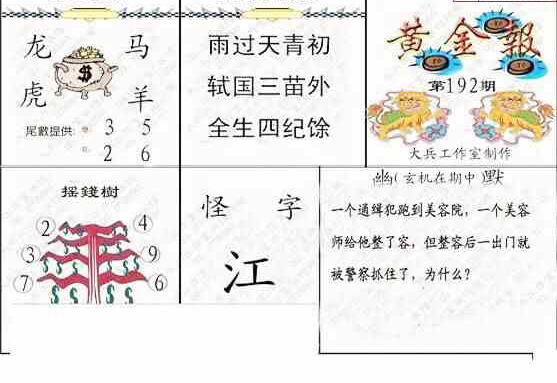 龙 马
虎 羊
尾數提供: 3 5
2 6
雨过天青初
轼国三苗外
全生四纪馀
黄金報
第192期
大兵工作室制作
摇錢樹
2 4
3 9
7 6
怪 字
江
幽(玄机在期中 默
一个通缉犯跑到美容院，一个美容
师给他整了容，但整容后一出门就
被警察抓住了，为什么?